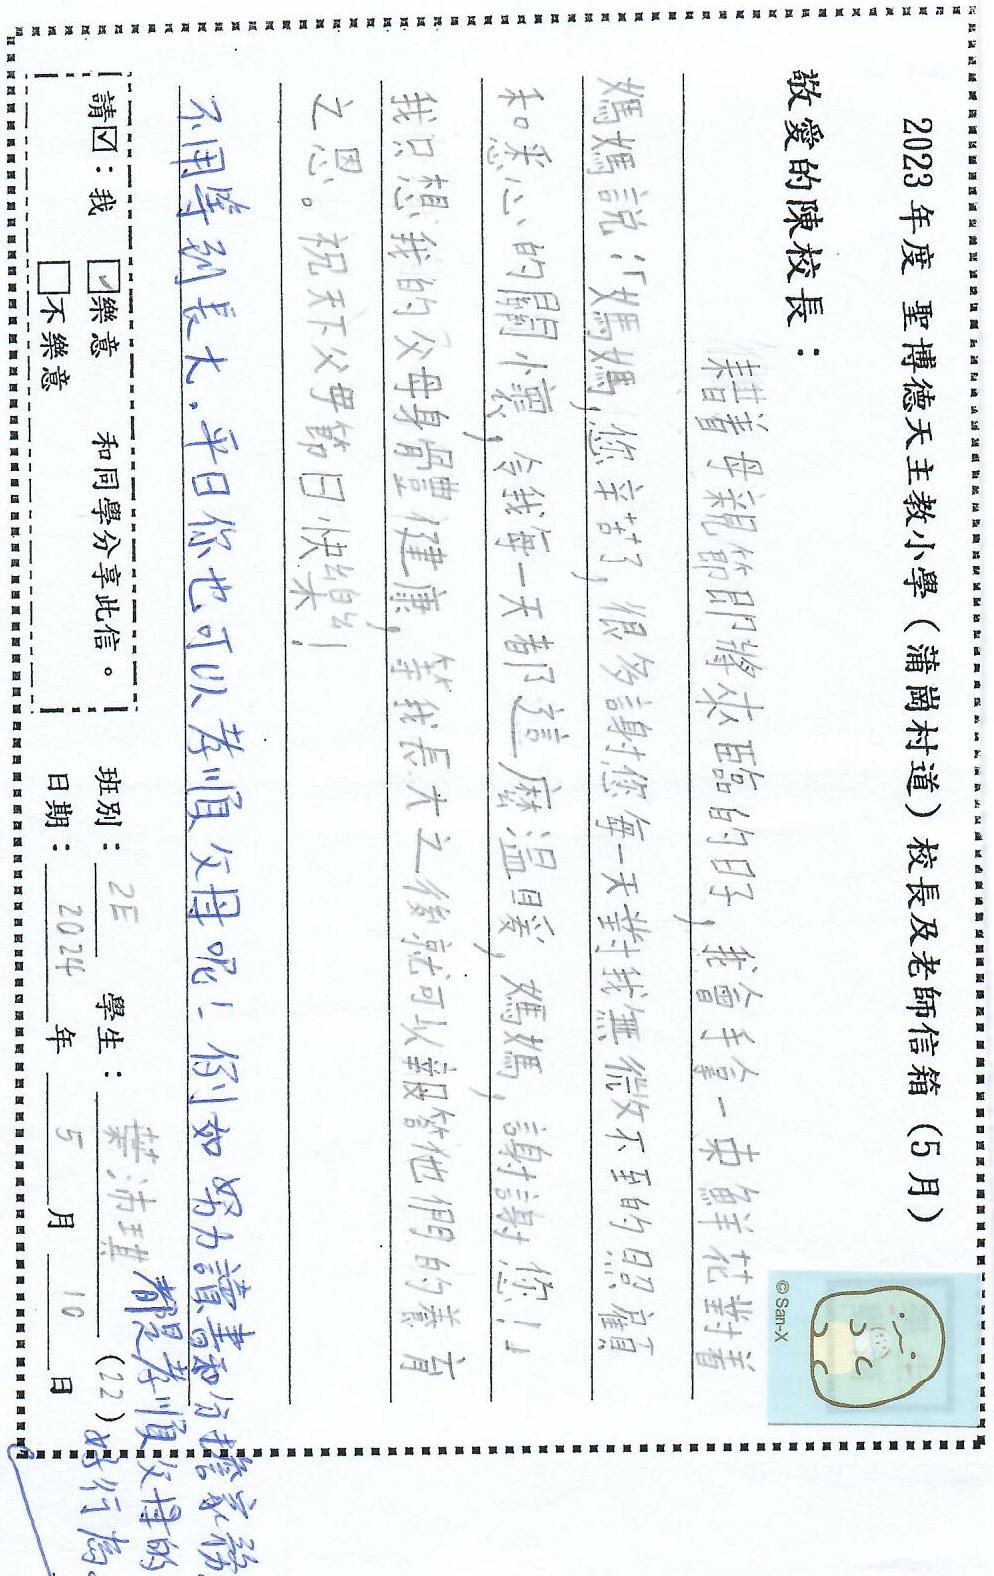 2023年度 聖博德天主教小學（蒲崗村道）校長及老師信箱（5月）
©San-X
敬愛的陳校長：
藉着母親節即將來臨的日子，我會手拿一束鮮花對着
媽媽説：「媽媽，您辛苦了，很多謝您每一天對我無微不至的照顧
和悉心的關小懷，令我每一天都這麼温暖，媽媽，謝謝您！」
我只想我的父母身體健康，等我長大之後就可以報答他們的養育
之恩。祝天下父母節日快樂！
不用等到長大，平日你也可以孝順父母呢！例如努力讀書和分擔家務，
都是孝順父母的
好行為。
請☑：我 ☑樂意 和同學分享此信。
☐不樂意
班別：2E 學生：葉沛琪 (22)
日期：2024年5月10日